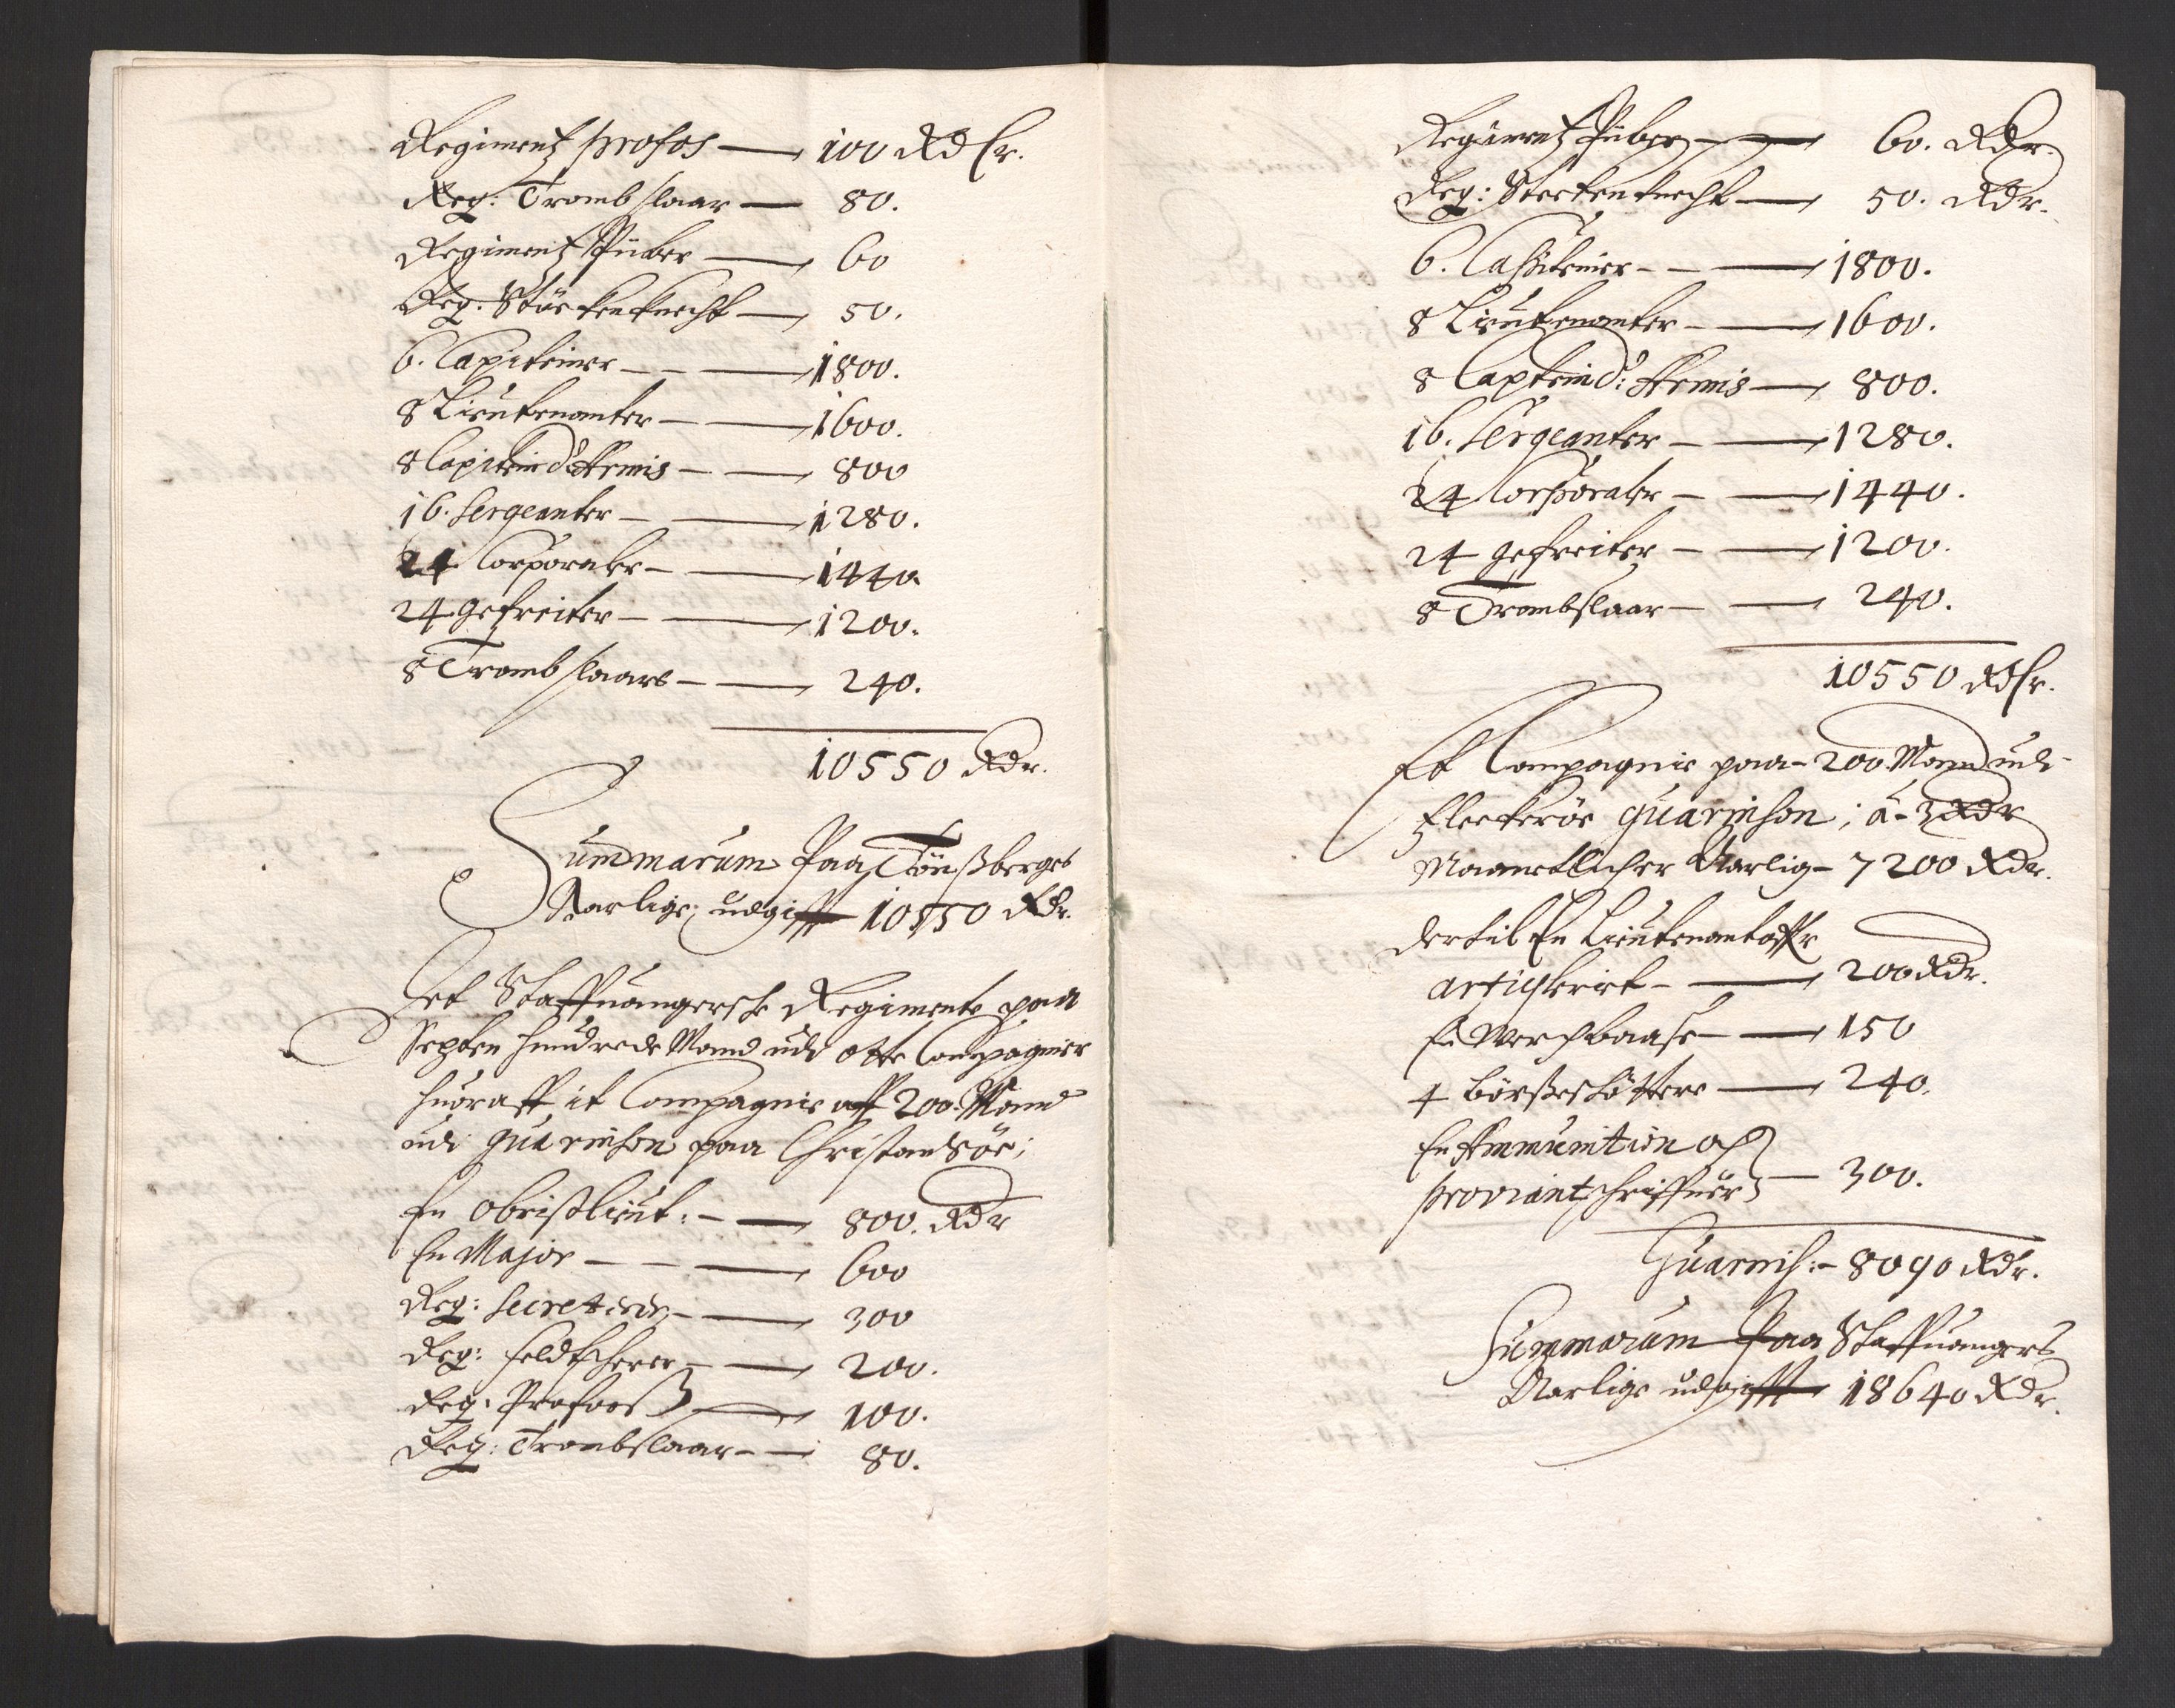 Regimentz profos — 100 Rdlr.
Reg: Trombslaar — 80.
Regimentz Piiber — 60
Reg: Störkenknecht — 50.
6. Capiteiner — 1800.
8 Lieutenanter — 1600.
8 Capitein d'Armis — 800
16. Sergeanter — 1280.
24 Corporaler — 1440
24 gefreiter — 1200.
8 Trombslaare — 240.
10550 Rdr.
Summarum Paa Tönsberges
Aarlige udgifft 10550 Rdr.
Det Staffuangersche Regimente paa
Septen hundrede Mand udi otte Compagnier
huoraff it Compagnie aff 200. Mand
udi guarnison paa Christansöe;
En Obristlieut: — 800. Rdr
En Major — 600
Reg: Secreterer — 300
Reg: feldtscherer — 200.
Reg: Profoes — 100.
Reg: Trombslaar — 80.
Regimentz Piiber — 60. Rdr.
Reg: Steckenknecht — 50. Rdr.
6. Capiteiner — 1800.
8 Lieutenanter — 1600.
8 Captein d: Armis — 800.
16. Sergeanter — 1280.
24 Corporaler — 1440.
24 gefreiter — 1200.
8 Trombslaar — 240.
10550 Rdlr.
Et Compagnie paa 200 Mand udi
Fleckeröe guarnison; á 3 Rdr
Maanetlicher Aarlig 7200 Rdr.
dertil En Lieutenant aff
artiglerict — 200 Rdr.
En Werchbaase — 150
4 börsseskötttere — 240.
En Ammunition och
proviantschriffuer — 300.
Guarnis: 8090 Rdr.
Summarum Paa Staffuangers
Aarlige udgifft 18640 Rdr.